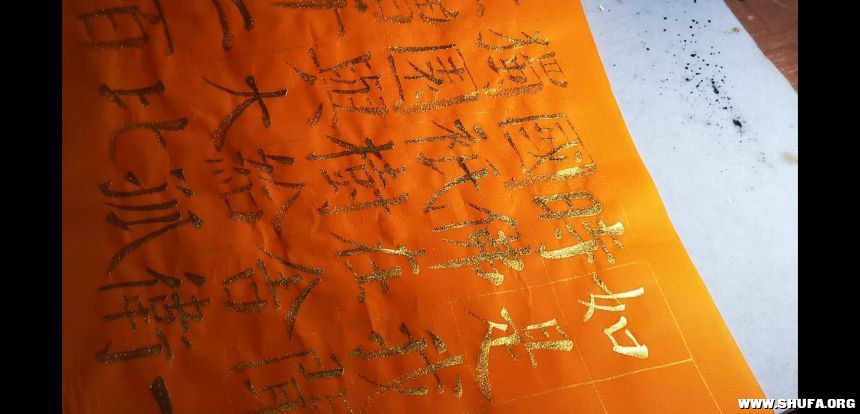 如是我聞一
時佛在舍衛
國祇樹給孤
獨園與大比
二百
WWW.SHUFA.ORG